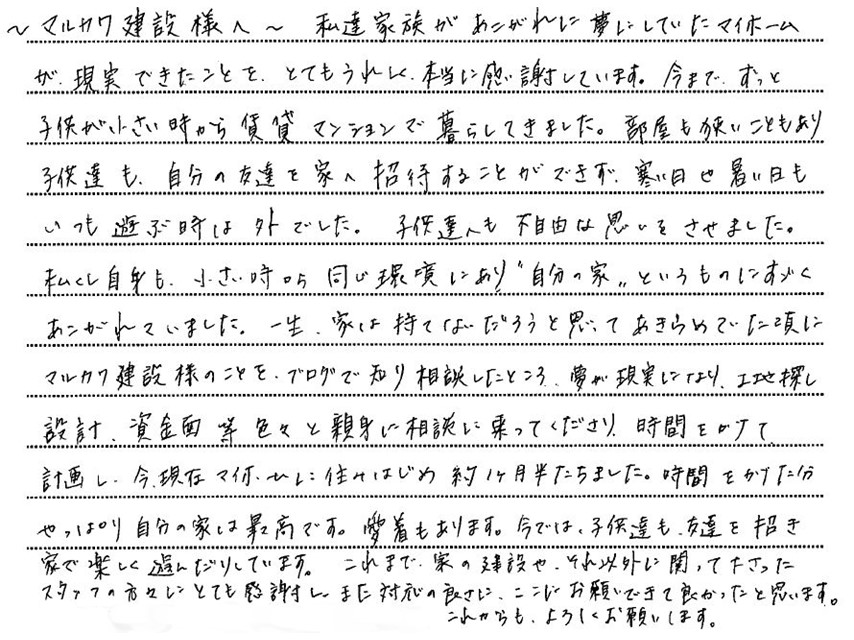 ～マルカワ建設様へ～ 私達家族があこがれに夢にしていたマイホーム
が、現実できたことを、とてもうれしく、本当に感謝しています。今まで、ずっと
子供が小さい時から賃貸マンションで暮らしてきました。部屋も狭いこともあり
子供達も、自分の友達を家へ招待することができず、寒い日や暑い日も
いつも遊ぶ時は外でした。子供達へも不自由な思いをさせました。
私くし自身も、小さい時から同じ環境にあり"自分の家"というものにすごく
あこがれていました。一生、家は持てないだろうと思ってあきらめていた頃に
マルカワ建設様のことを、ブログで知り相談したところ、夢が現実になり、土地探し
設計、資金面等色々と親身に相談に乗ってくださり、時間をかけて
計画し、今、現在マイホームに住みはじめ約1ヶ月半たちました。時間をかけた分
やっぱり自分の家は最高です。愛着もあります。今では、子供達も、友達を招き
家で楽しく遊んだりしています。これまで、家の建設や、それ以外に関って下さった
スタッフの方々にとても感謝し、また対応の良さに、ここにお願いできて良かったと思います。
これからも、よろしくお願いします。